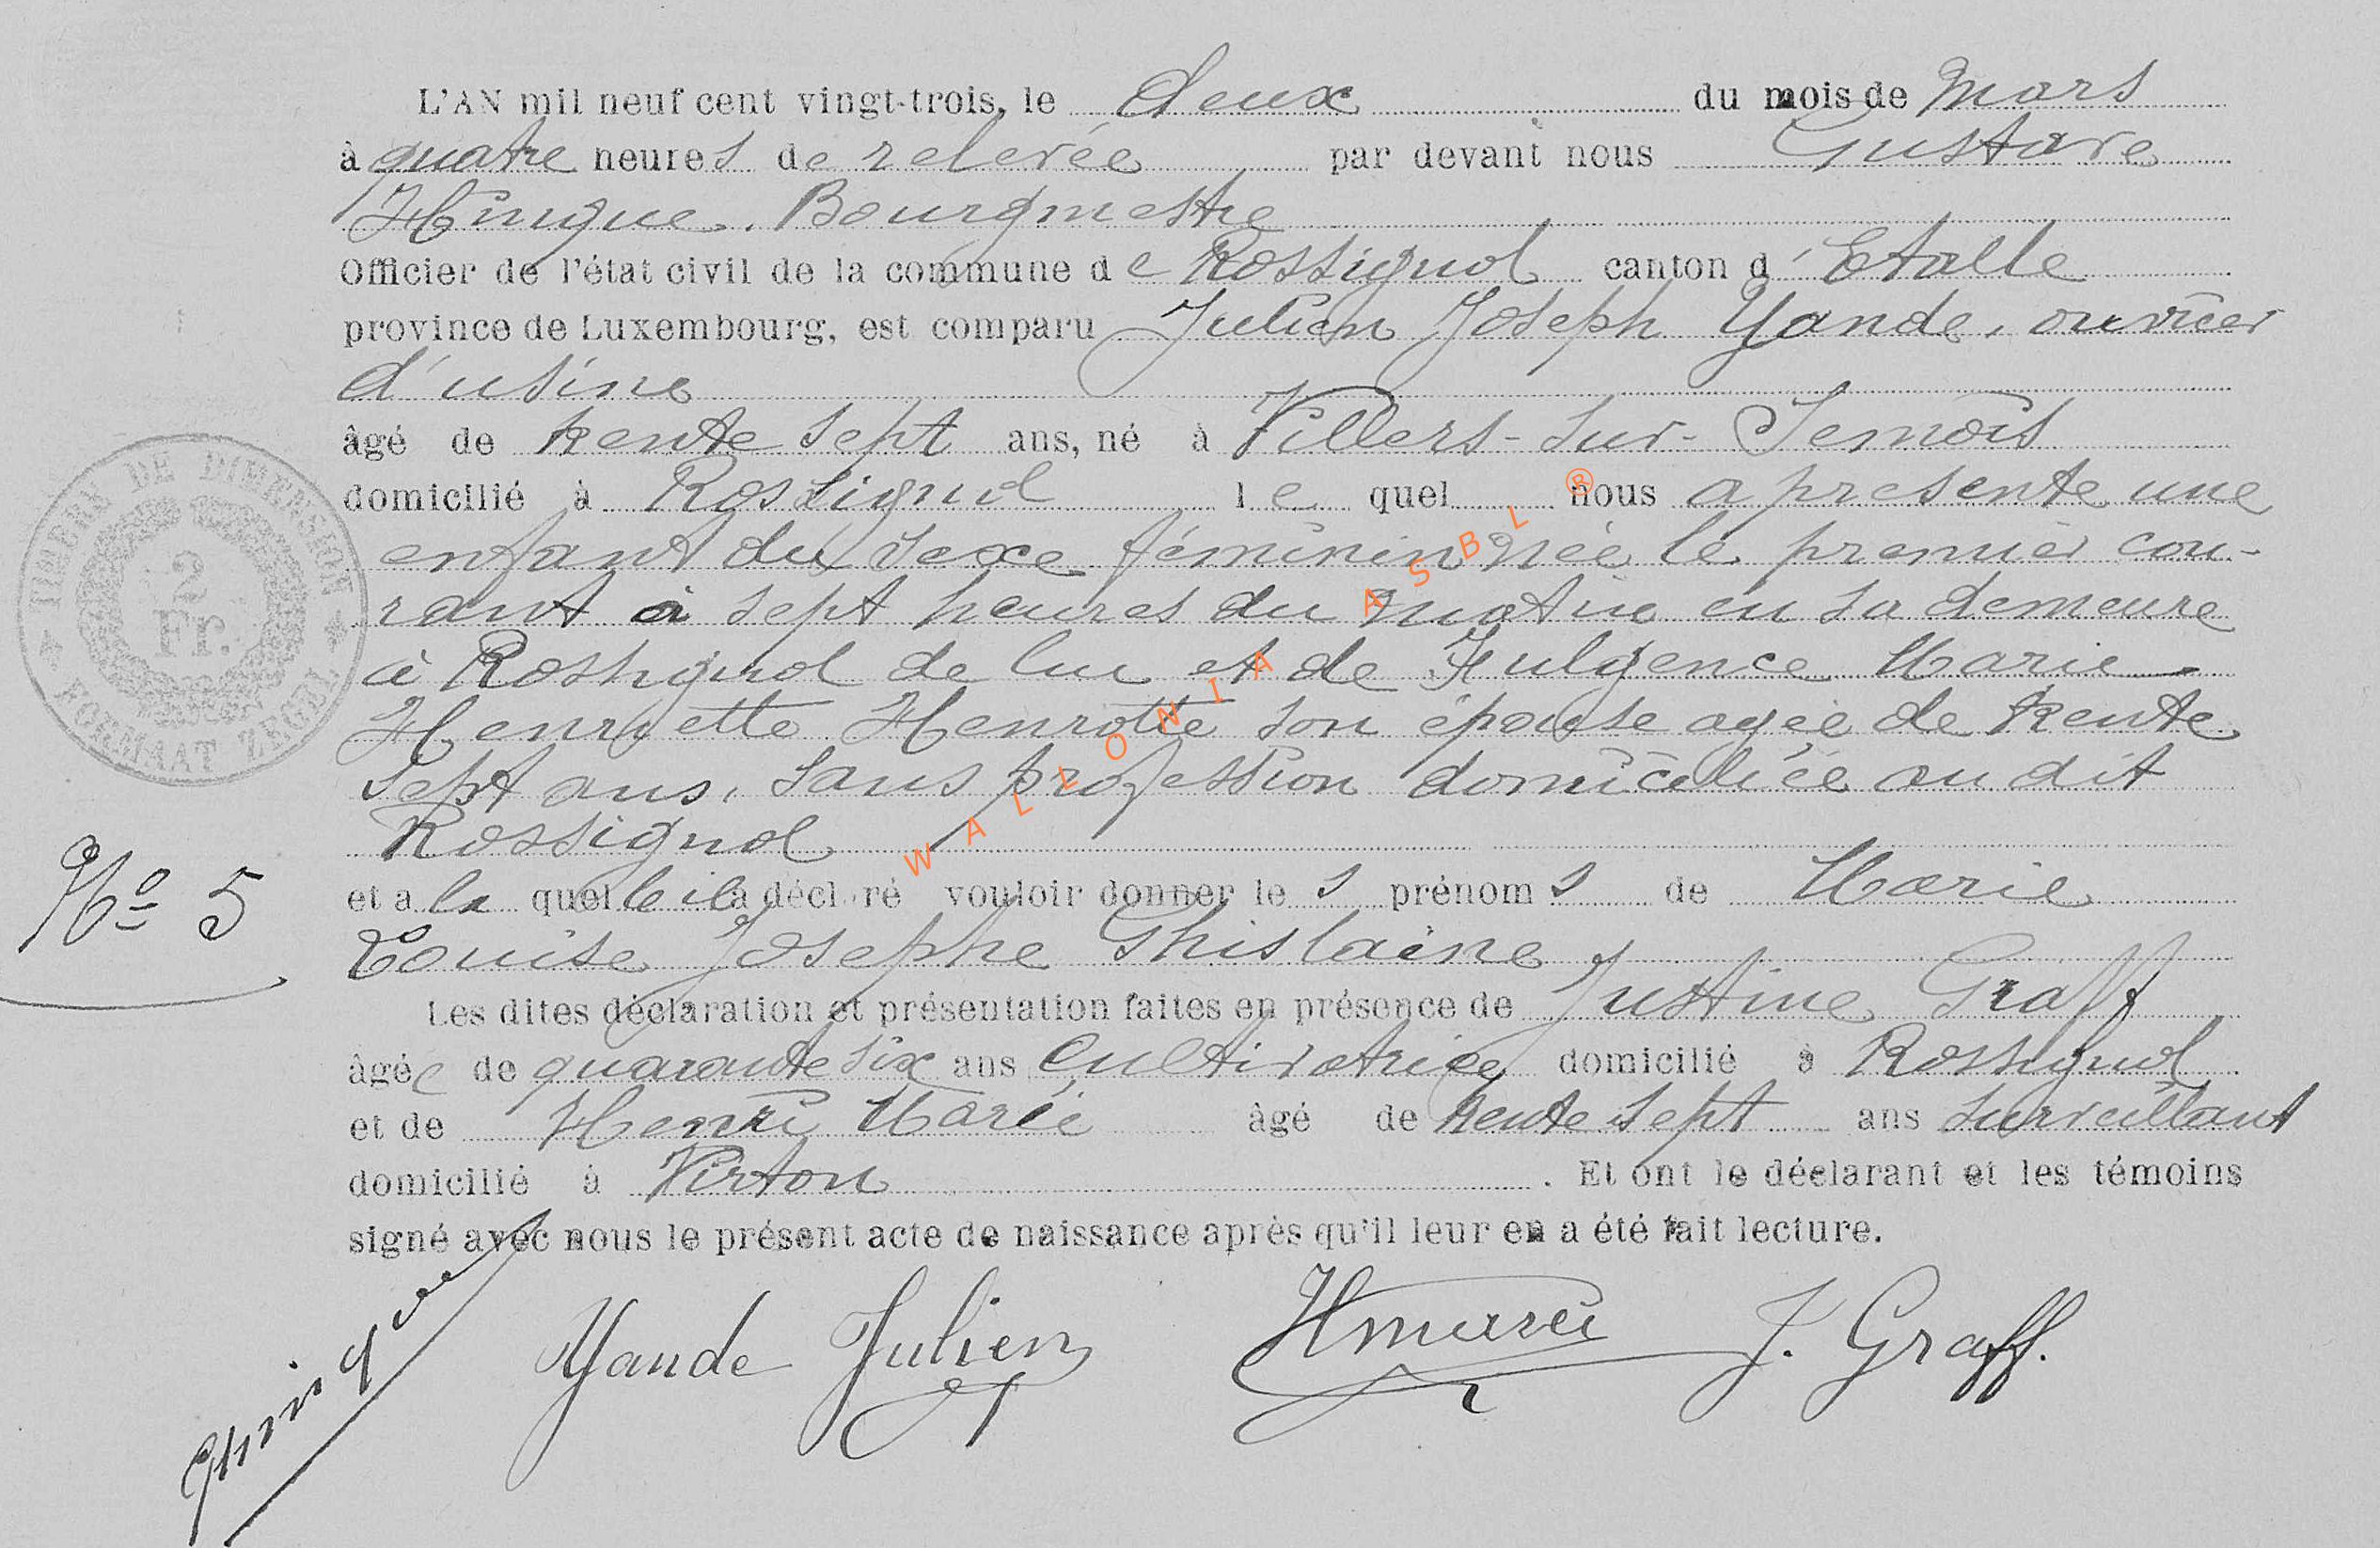 L'AN mil neuf cent vingt-trois, le deux du mois de Mars
à quatre heures de relevée par devant nous Gustave
Hingue, Bourgmestre
Officier de l'état civil de la commune de Rossignol canton d'Etalle
province de Luxembourg, est comparu Julien Joseph Yande, ouvrier
d'usine
âgé de trente sept ans, né à Villers-sur-Semois
domicilié à Rossignol lequel nous a presenté une
enfant du sexe féminin née le premier cou-
rant à sept heures du matin en sa demeure
à Rossignol de lui et de Fulgence Marie
Henriette Henrotte son épouse agée de trente
sept ans, sans profession domiciliée au dit
Rossignol
et a la quelle il a déclaré vouloir donner les prénoms de Marie
Louise Josephe Ghislaine
Les dites déclaration et présentation faites en présence de Justine Graff
âgée de quarante six ans Cultivatrice domicilié à Rossignol
et de Henri Marié âgé de trente sept ans surveillant
domicilié à Virton. Et ont le déclarant et les témoins
signé avec nous le présent acte de naissance après qu'il leur en a été fait lecture.
Yande Julien
J. Graff.
No 5
TIMBRE DE DIMENSION
2
Fr.
FORMAAT ZEGEL
WALLONIA ASBL ®